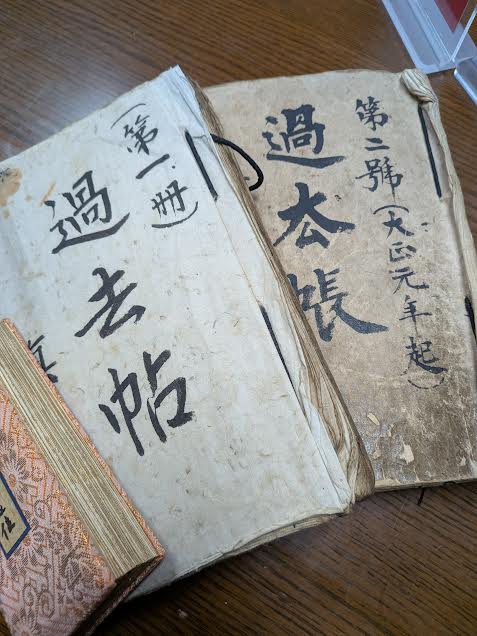 第二號(大正元年起)
過去帳
(第一冊)
過去帖